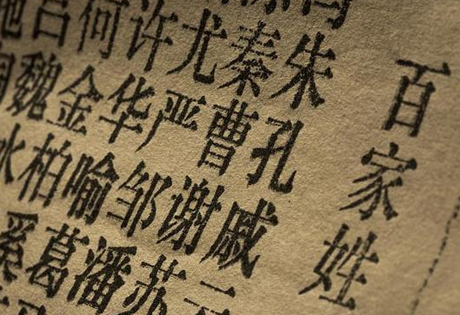 百家姓
朱秦尤许何吕
孔曹严华金魏
戚谢邹喻柏水
云苏潘葛奚